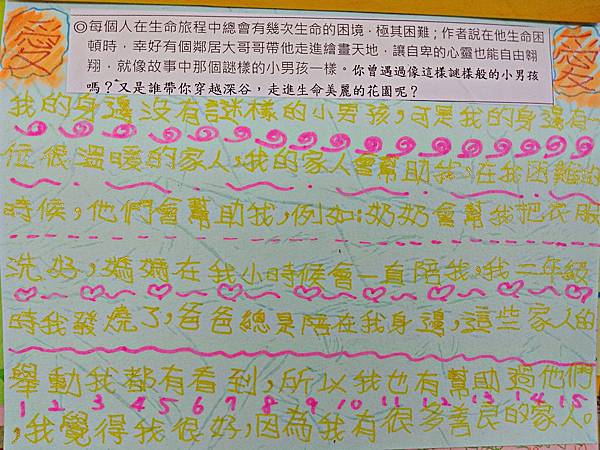 愛
愛
◎每個人在生命旅程中總會有幾次生命的困境,極其困難;作者說在他生命困
頓時,幸好有個鄰居大哥哥帶他走進繪畫天地,讓自卑的心靈也能自由翱
翔,就像故事中那個謎樣的小男孩一樣。你曾遇過像這樣謎樣般的小男孩
嗎?又是誰帶你穿越深谷,走進生命美麗的花園呢?
我的身邊沒有謎樣的小男孩,可是我的身邊有一
位很溫暖的家人,我的家人會幫助我,在我困難的
時候,他們會幫助我,例如:奶奶會幫我把衣服
洗好,媽媽在我小時候會一直陪我,我二年級
時我發燒了,爸爸總是陪在我身邊,這些家人的
舉動我都有看到,所以我也有幫助過他們
1 2 3 4 5 6 7 8 9 10 11 12 13 14 15
,我覺得我很好,因為我有很多善良的家人。